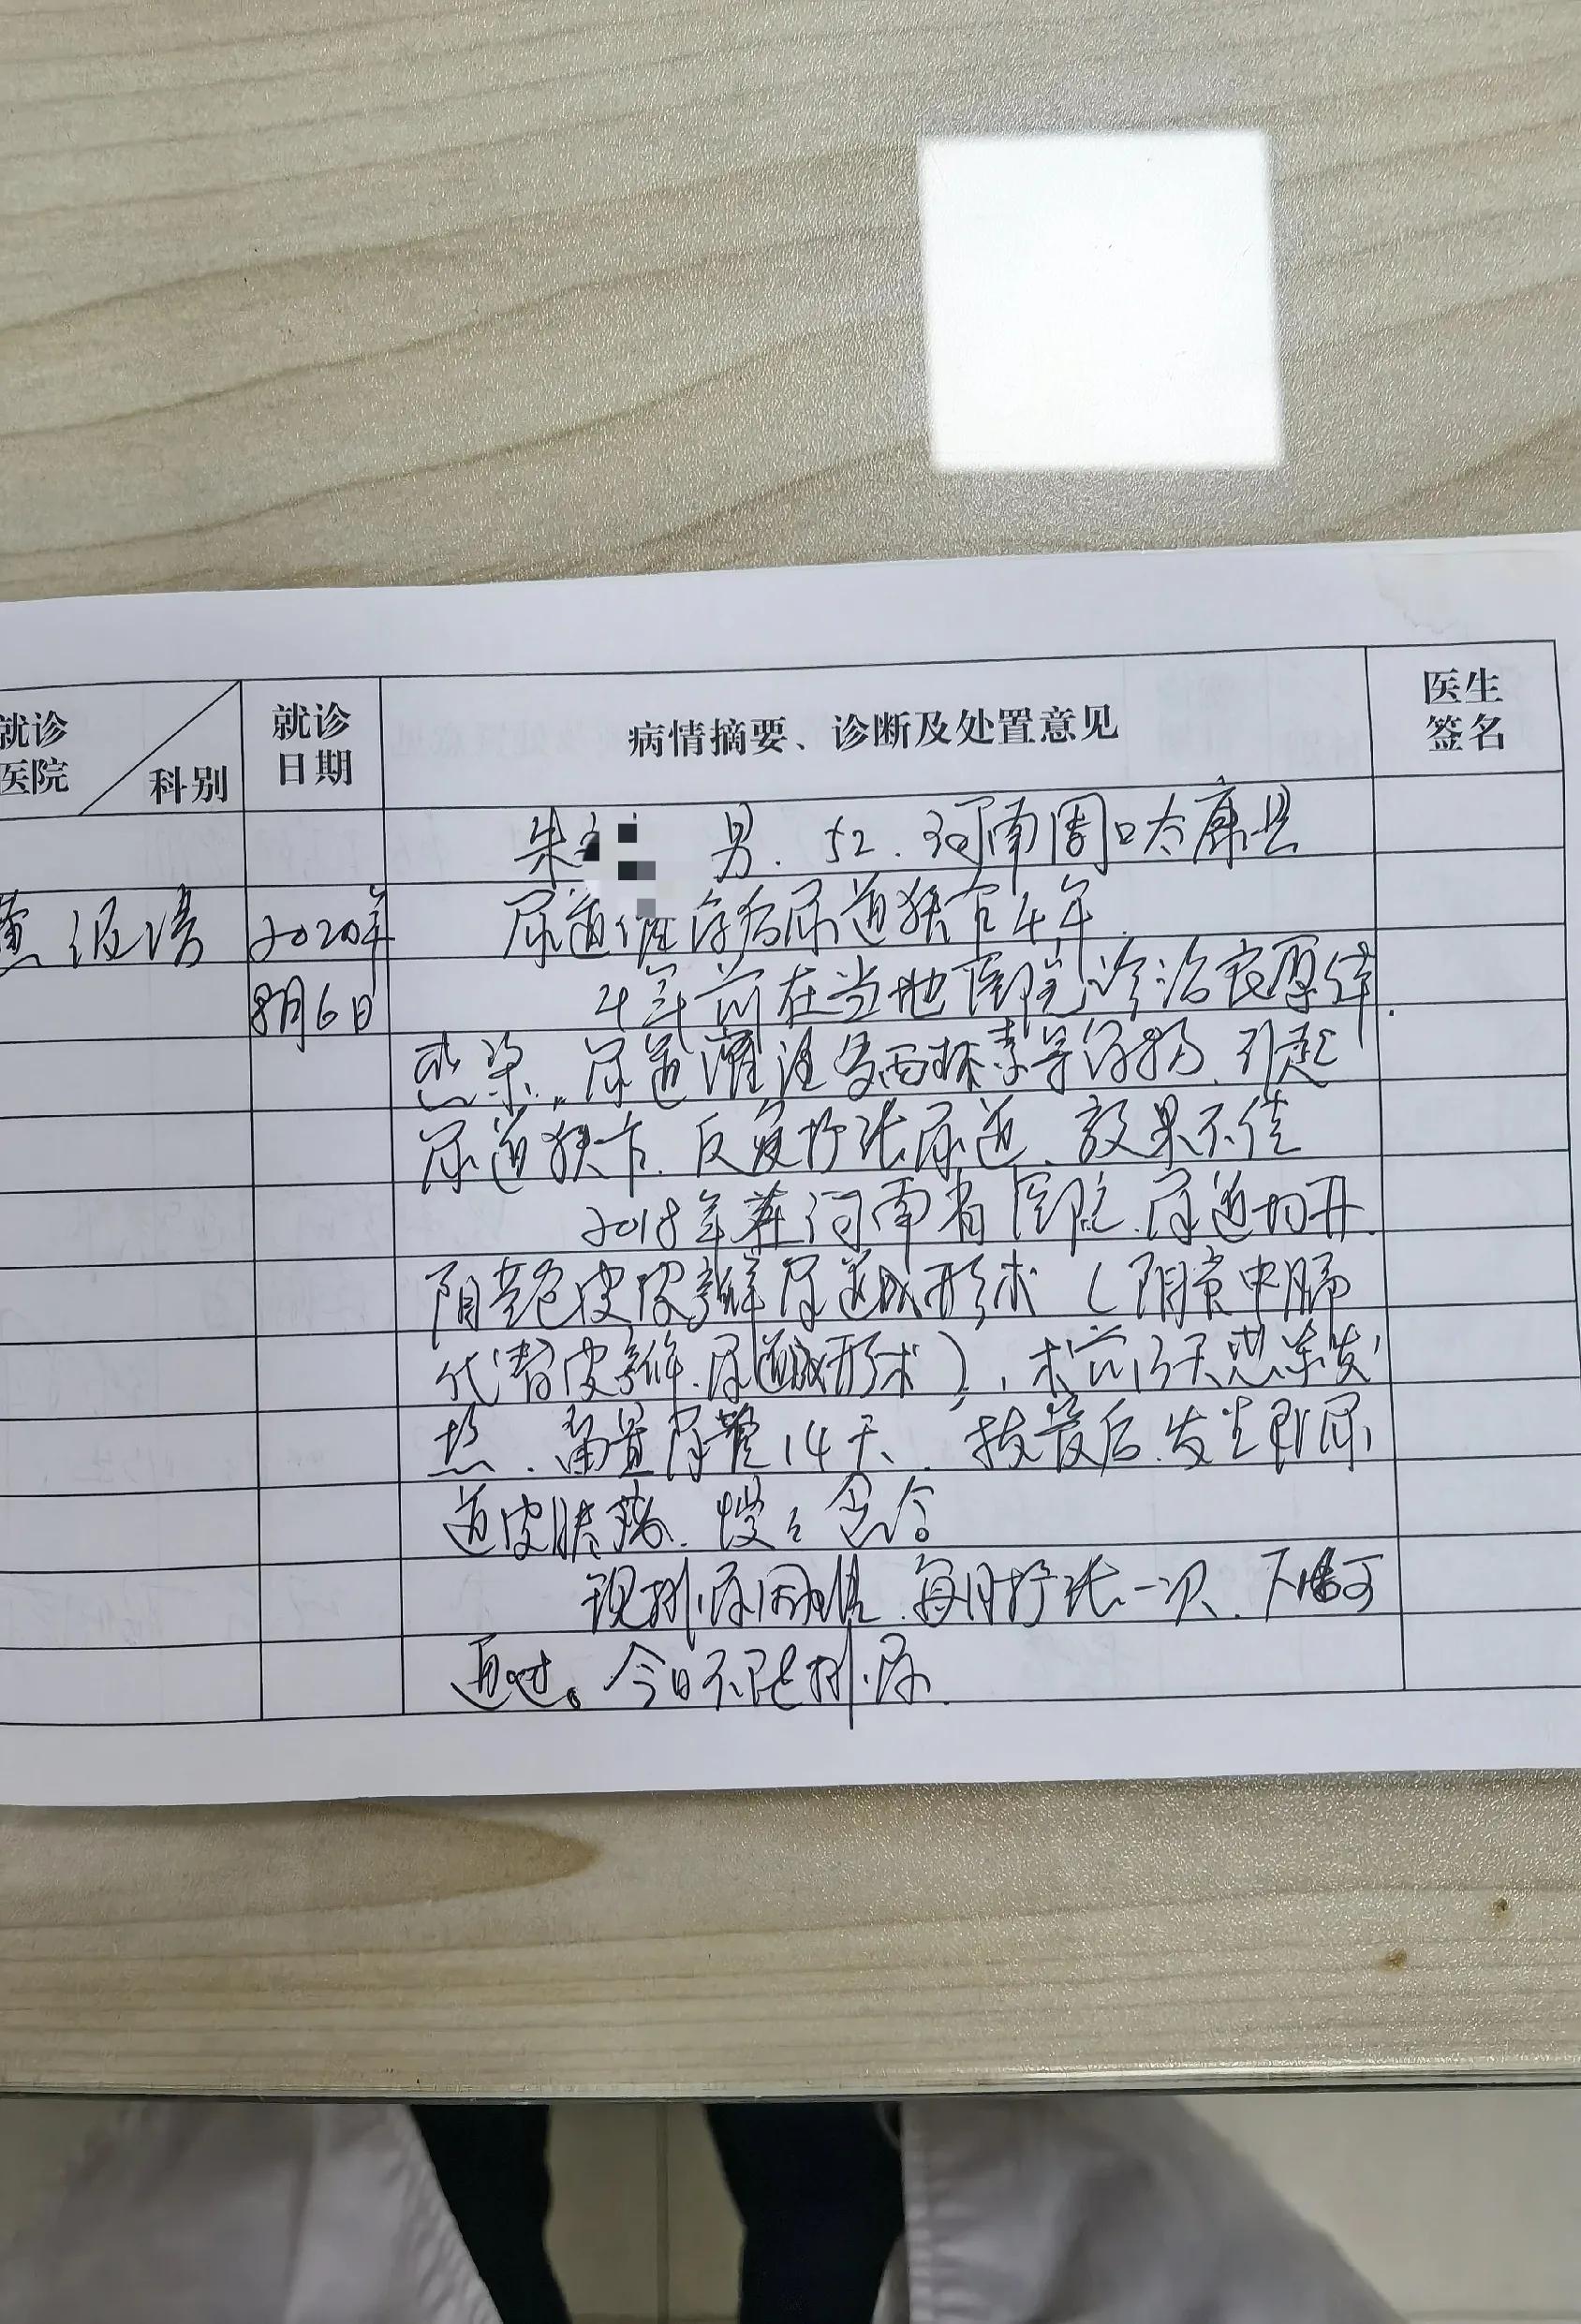 就诊医院 科别 就诊日期 病情摘要、诊断及处置意见 医生签名
朱 男. 52. 河南周口太康县
2020年 尿道 后尿道狭窄4年.
8月6日 4年前在当地医院诊治衣原体
感染, 尿道灌注 西林素等药物, 引起
尿道狭窄. 反复扩张尿道, 效果不佳
2018年在河南省医院, 尿道切开.
阴茎包皮皮瓣尿道成形术 (阴茎中隔
代替皮瓣, 尿道成形术), 术前13天感染发
热, 留置尿管14天, 拔管后, 发生即尿
道皮肤瘘, 慢慢愈合。
现排尿困难, 每月扩张一次, 可
通过。今日不能排尿.